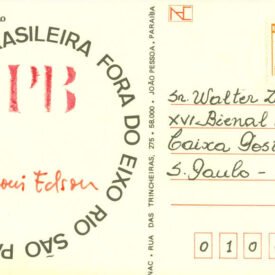 BRASILEIRA FORA DO EIXO RIO SÃO PA
PB
Edson
NAC • RUA DAS TRINCHEIRAS, 275 • 58.000 • JOÃO PESSOA, PARAÍBA
NC
Sr. Walter Z
XVI Bienal
Caixa Post
S. Paulo -
0 1 0